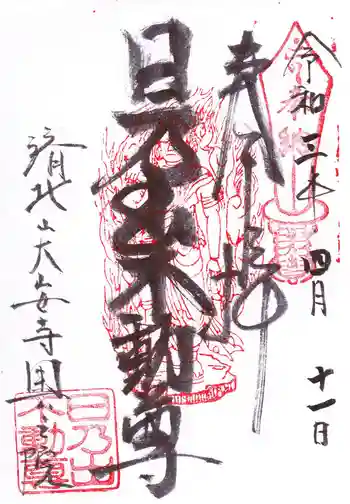 令和三年四月十一日
奉拝
日乃出不動尊
北山大安寺 院
日乃出
不動尊